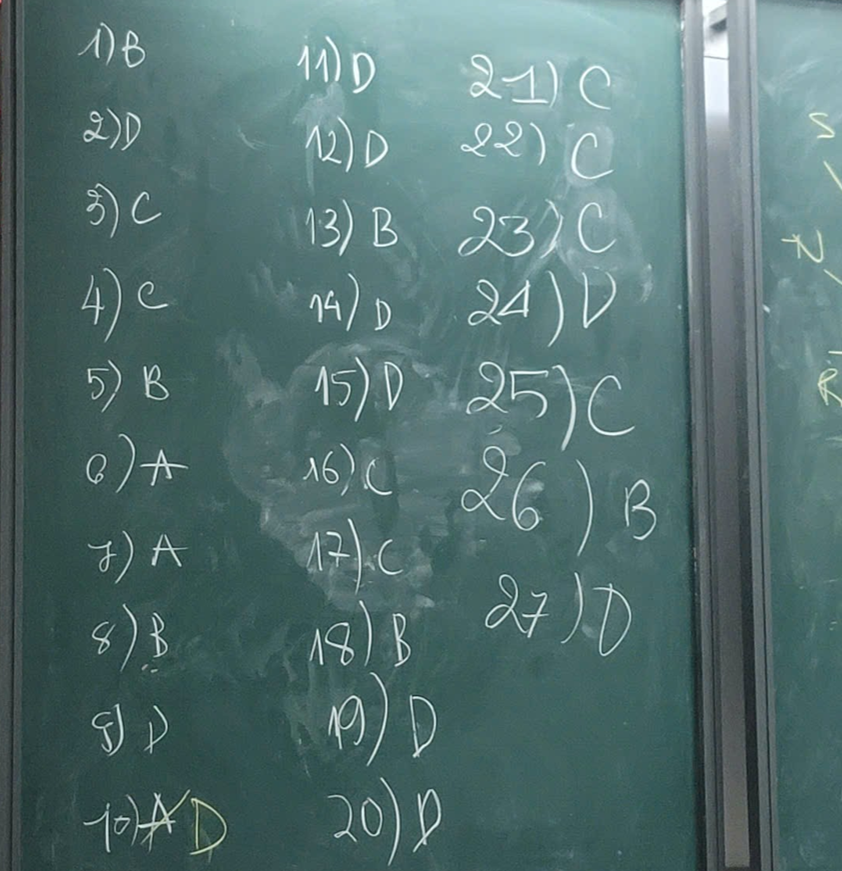 1) B
2) D
3) C
4) C
5) B
6) A
7) A
8) B
9) D
10) A D
11) D
12) D
13) B
14) D
15) D
16) C
17) C
18) B
19) D
20) D
21) C
22) C
23) C
24) D
25) C
26) B
27) D
S
N
R